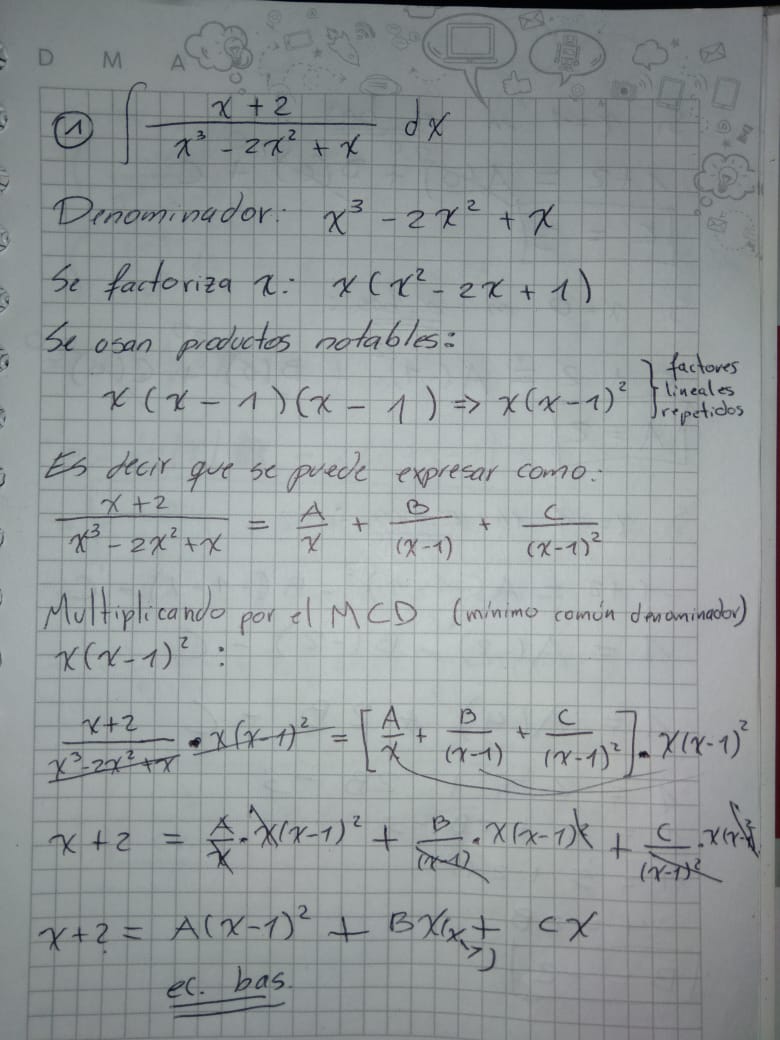 D M A
① ∫ (x + 2)/(x³ - 2x² + x) dx
Denominador: x³ - 2x² + x
Se factoriza x: x(x² - 2x + 1)
Se usan productos notables:
x(x - 1)(x - 1) ⇒ x(x-1)² } factores lineales repetidos
Es decir que se puede expresar como:
(x+2)/(x³ - 2x² + x) = A/x + B/(x-1) + C/(x-1)²
Multiplicando por el MCD (mínimo común denominador)
x(x-1)² :
(x+2)/(x³-2x²+x) • x(x-1)² = [A/x + B/(x-1) + C/(x-1)²] • x(x-1)²
x+2 = A/x • x(x-1)² + B/(x-1) • x(x-1)² + C/(x-1)² • x(x-1)²
x+2 = A(x-1)² + Bx(x-1) + Cx
ec. bas.